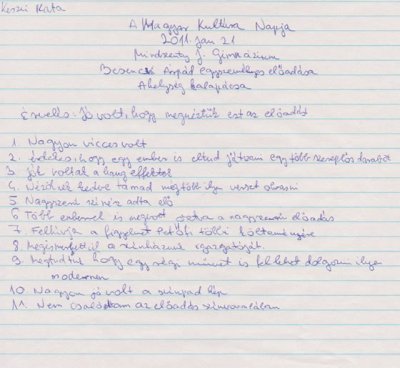 Keszei Kata
A Magyar Kultúra Napja
2011. jan 21
Mindszenty J. Gimnázium
Besenczi Árpád egyszemélyes előadása
A helység kalapácsa
Érvelés: Jó volt, hogy megnéztük ezt az előadást
1. Nagyon vicces volt
2. érdekes, hogy egy ember is eltud játszani egy több szereplős darabot
3. Jók voltak a hang effektek
4. Nézőnek kedve támad még több ilyen verset olvasni
5. Nagyszerű színész adta elő
6 Több embernek is megvolt ez a nagyszerű előadás
7 Felhívja a figyelmet Petőfi többi költeményére
8 Megismertük a színházunk igazgatóját.
9 Megtudtuk hogy egy régi művet is fel lehet dolgozni ilyen
modernen
10. Nagyon jó volt a színpad kép
11. Nem csalódtam az előadás színvonalában